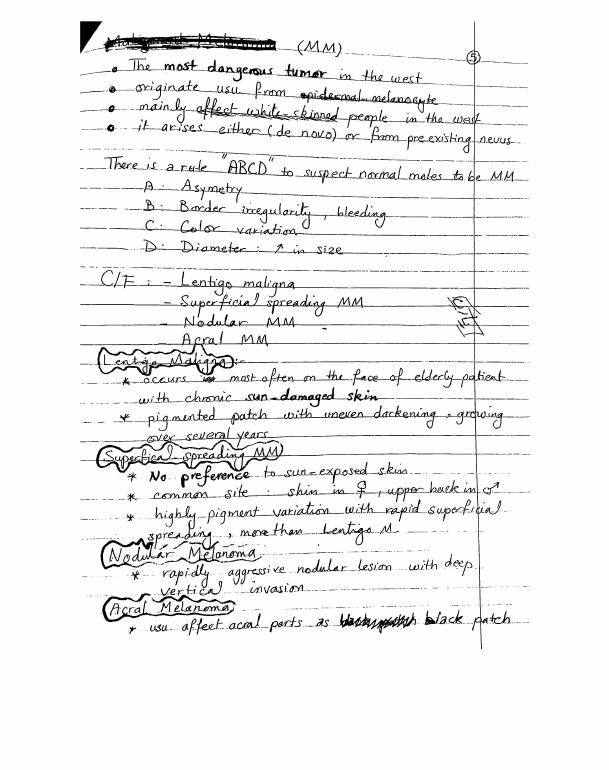 Malignant Melanoma (MM)
5
• The most dangerous tumor in the west
• originate usu from epidermal melanocyte
• mainly affect white-skinned people in the west
• it arises either (de novo) or from preexisting nevus
There is a rule "ABCD" to suspect normal moles to be MM
A: Asymetry
B: Border irregularity, bleeding
C: Color variation
D: Diameter: ↑ in size
C/F: - Lentigo maligna
- Superficial spreading MM
- Nodular MM
Acral MM
Lentigo Maligna:-
* occurs most often on the face of elderly patient
with chronic sun-damaged skin
* pigmented patch with uneven darkening, growing
over several years
Superfical spreading MM
* No preference to sun-exposed skin
* common site: shin in ♀, upper back in ♂
* highly pigment variation with rapid superficial
spreading, more than Lentigo M.
Nodular Melanoma
* rapidly aggressive nodular lesion with deep
vertical invasion
Acral Melanoma
* usu affect acral parts as black patch